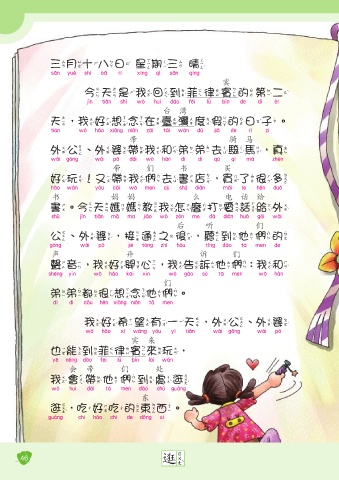 三月十八日 星期三 晴
sān yuè shí bā rì xīng qí sān qíng
宾
今天是我回到菲律賓的第二
jīn tiān shì wǒ huí dào fēi lǜ bīn de dì èr
台 湾
天,我好想念在臺灣度假的日子。
tiān wǒ hǎo xiǎng niàn zài tái wān dù jià de rì zi
带 骑 马
外公、外婆帶我和弟弟去騎馬,真
wài gōng wài pó dài wǒ hàn dì di qù qí mǎ zhēn
带 们 书 买
好玩!又帶我們去書店,買了很多
hǎo wán yòu dài wǒ men qù shū diàn mǎi le hěn duō
书 妈 妈 电 话 给
書。今天媽媽教我怎麼打電話給外
shū jīn tiān mā ma jiāo wǒ zěn me dǎ diàn huà gěi wài
后 听 们
公、外婆,接通之後,聽到他們的
gōng wài pó jiē tōng zhī hòu tīng dào tā men de
声 开 诉 们
聲音,我好開心,我告訴他們:我和
shēng yīn wǒ hǎo kāi xīn wǒ gào sù tā men wǒ hàn
们
弟弟都很想念他們。
dì di dōu hěn xiǎng niàn tā men
我好希望有一天,外公、外婆
wǒ hǎo xī wàng yǒu yì tiān wài gōng wài pó
宾 来
也能到菲律賓來玩,
yě néng dào fēi lǜ bīn lái wán
会 带 们 处
我會帶他們到處逛
wǒ huì dài tā men dào chù guàng
东
逛,吃好吃的東西。
guàng chī hǎo chī de dōng xi
46
逛